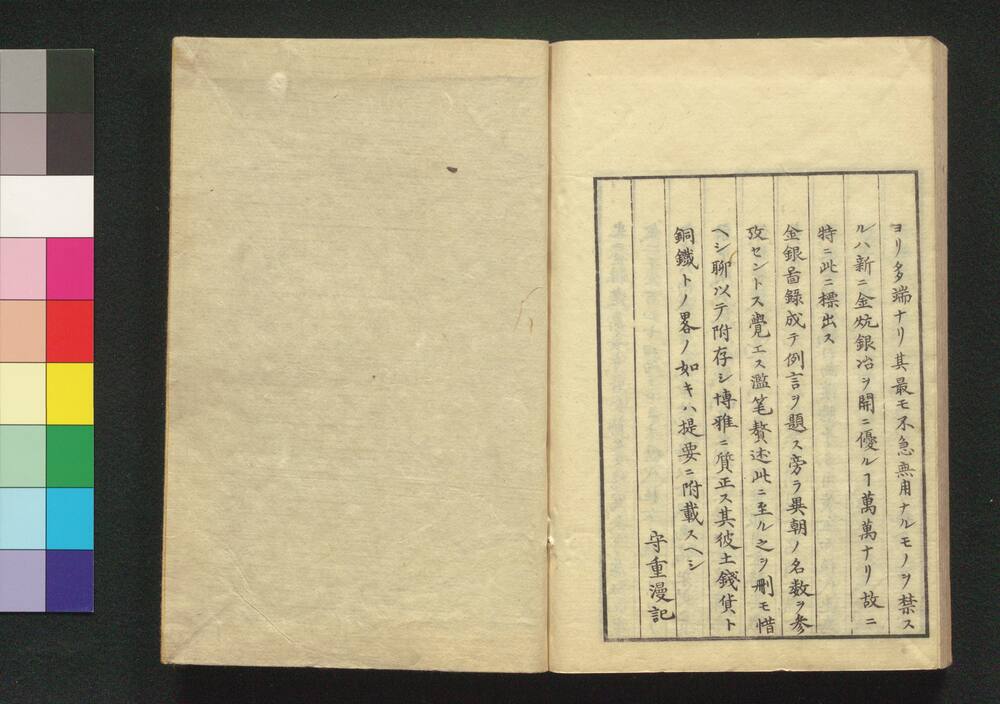 ヨリ多端ナリ其最モ不急無用ナルモノヲ禁ス
ルハ新ニ金炕銀冶ヲ開ニ優ルヿ萬萬ナリ故ニ
特ニ此ニ標出ス
金銀啚録成テ例言ヲ題ス旁ラ異朝ノ名数ヲ参
攷セントス覺エス濫笔贅述此ニ至ル之ヲ刪モ惜
ヘシ聊以テ附存シ博雅ニ質正ス其彼土錢貨ト
銅鐵トノ畧ノ如キハ提要ニ附載スヘシ
守重漫記